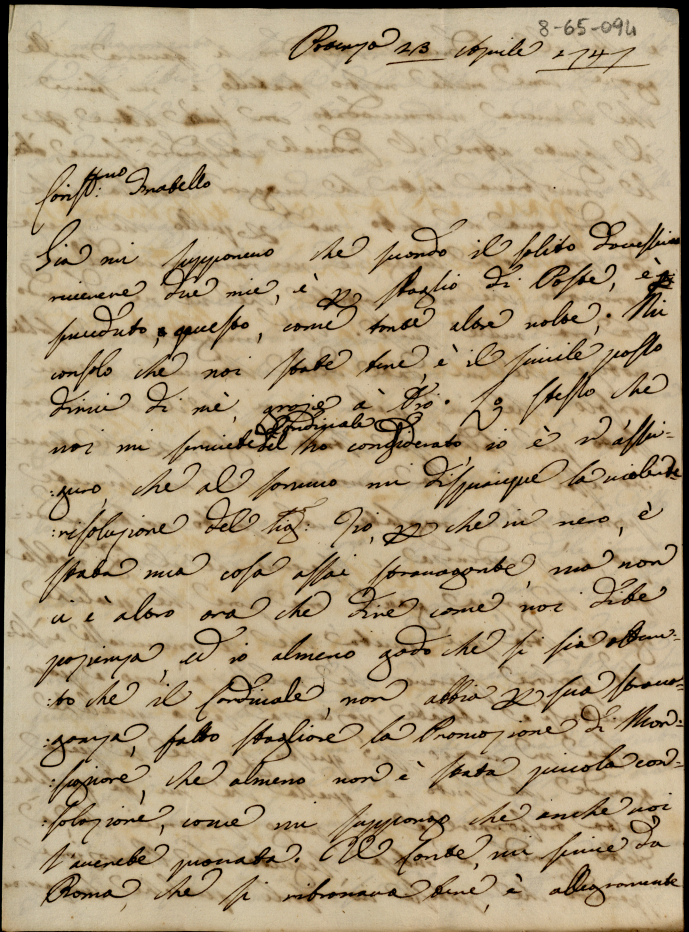 8-65-094
23 Aprile 1747
Cariss.mo Fratello
Già mi supponevo che quando il solito dovessivo
ricevere due mie, è p staglio di Poste, è
succeduto, questo, come tante altre volte; Mi
consolo che voi state bene, è il simile posso
dirvi di mè, grazie à Dio. Lo stesso che
Cardinale
voi mi scrivete del ho considerato, io è v'assi-
:curo, che al sommo mi dispiacque la violente
:risoluzione del Sig. Zio, p che in vero, è
stata una cosa assai stravagante, ma non
ci è altro ora che dire come voi dite
pazienza, ed io almeno godo che si sia otten-
:to che il Cardinale, non abbia p sua strava-
:ganza, fatto stagliare la Promozione di Mon-
:signore, che almeno non è stata piccola con-
:solazione, come mi suppongo che anche voi
l'averete provata. Il Conte, mi scrive da
Roma, che si ritrovava bene, è allegramente